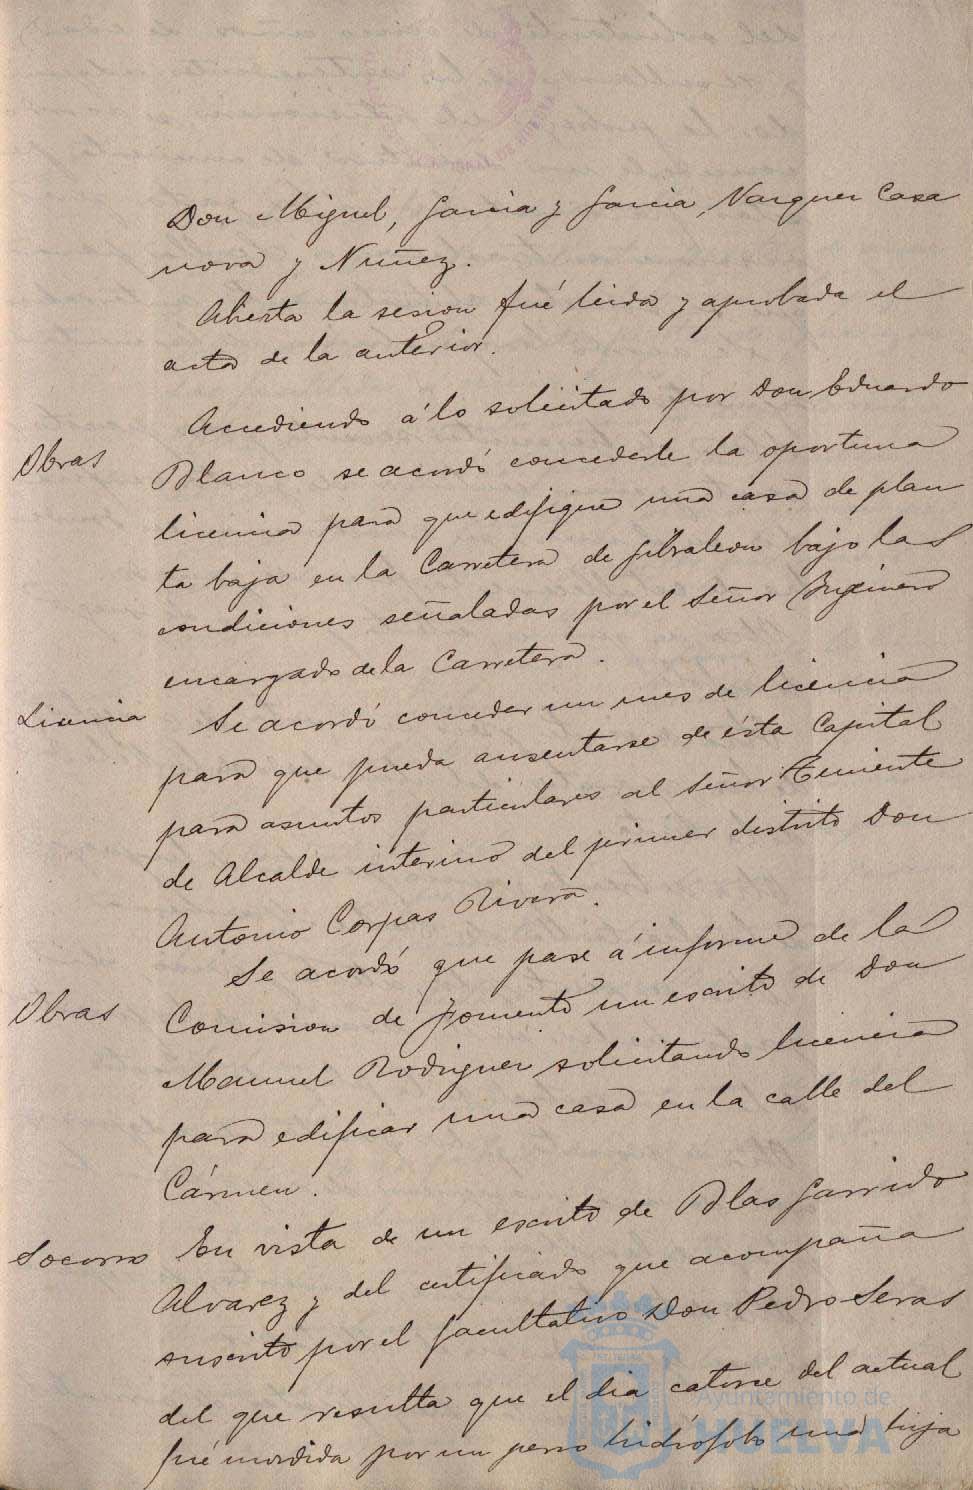 Don Miguel, Garcia y Garcia, Vazquez Casa
nova y Nuñez.
Abierta la sesion fué leida y aprobada el
acta de la anterior.
Obras
Accediendo á lo solicitado por Don Eduardo
Blanco se acordó concederle la oportuna
licencia para que edifique una casa de plan
ta baja en la Carretera de Gibraleon bajo las
condiciones señaladas por el Señor Ingeniero
encargado de la Carretera.
Licencia
Se acordó conceder un mes de licencia
para que pueda ausentarse de ésta Capital
para asuntos particulares al Señor Teniente
de Alcalde interino del primer distrito Don
Antonio Corpas Rivera.
Obras
Se acordó que pase á informe de la
Comision de Fomento un escrito de Don
Manuel Rodriguez solicitando licencia
para edificar una casa en la calle del
Cármen.
Socorro
En vista de un escrito de Blas Garrido
Alvarez y del certificado que acompaña
suscrito por el facultativo Don Pedro Seras
del que resulta que el dia catorce del actual
fué mordida por un perro hidrófobo una hija
Ayuntamiento de
HUELVA